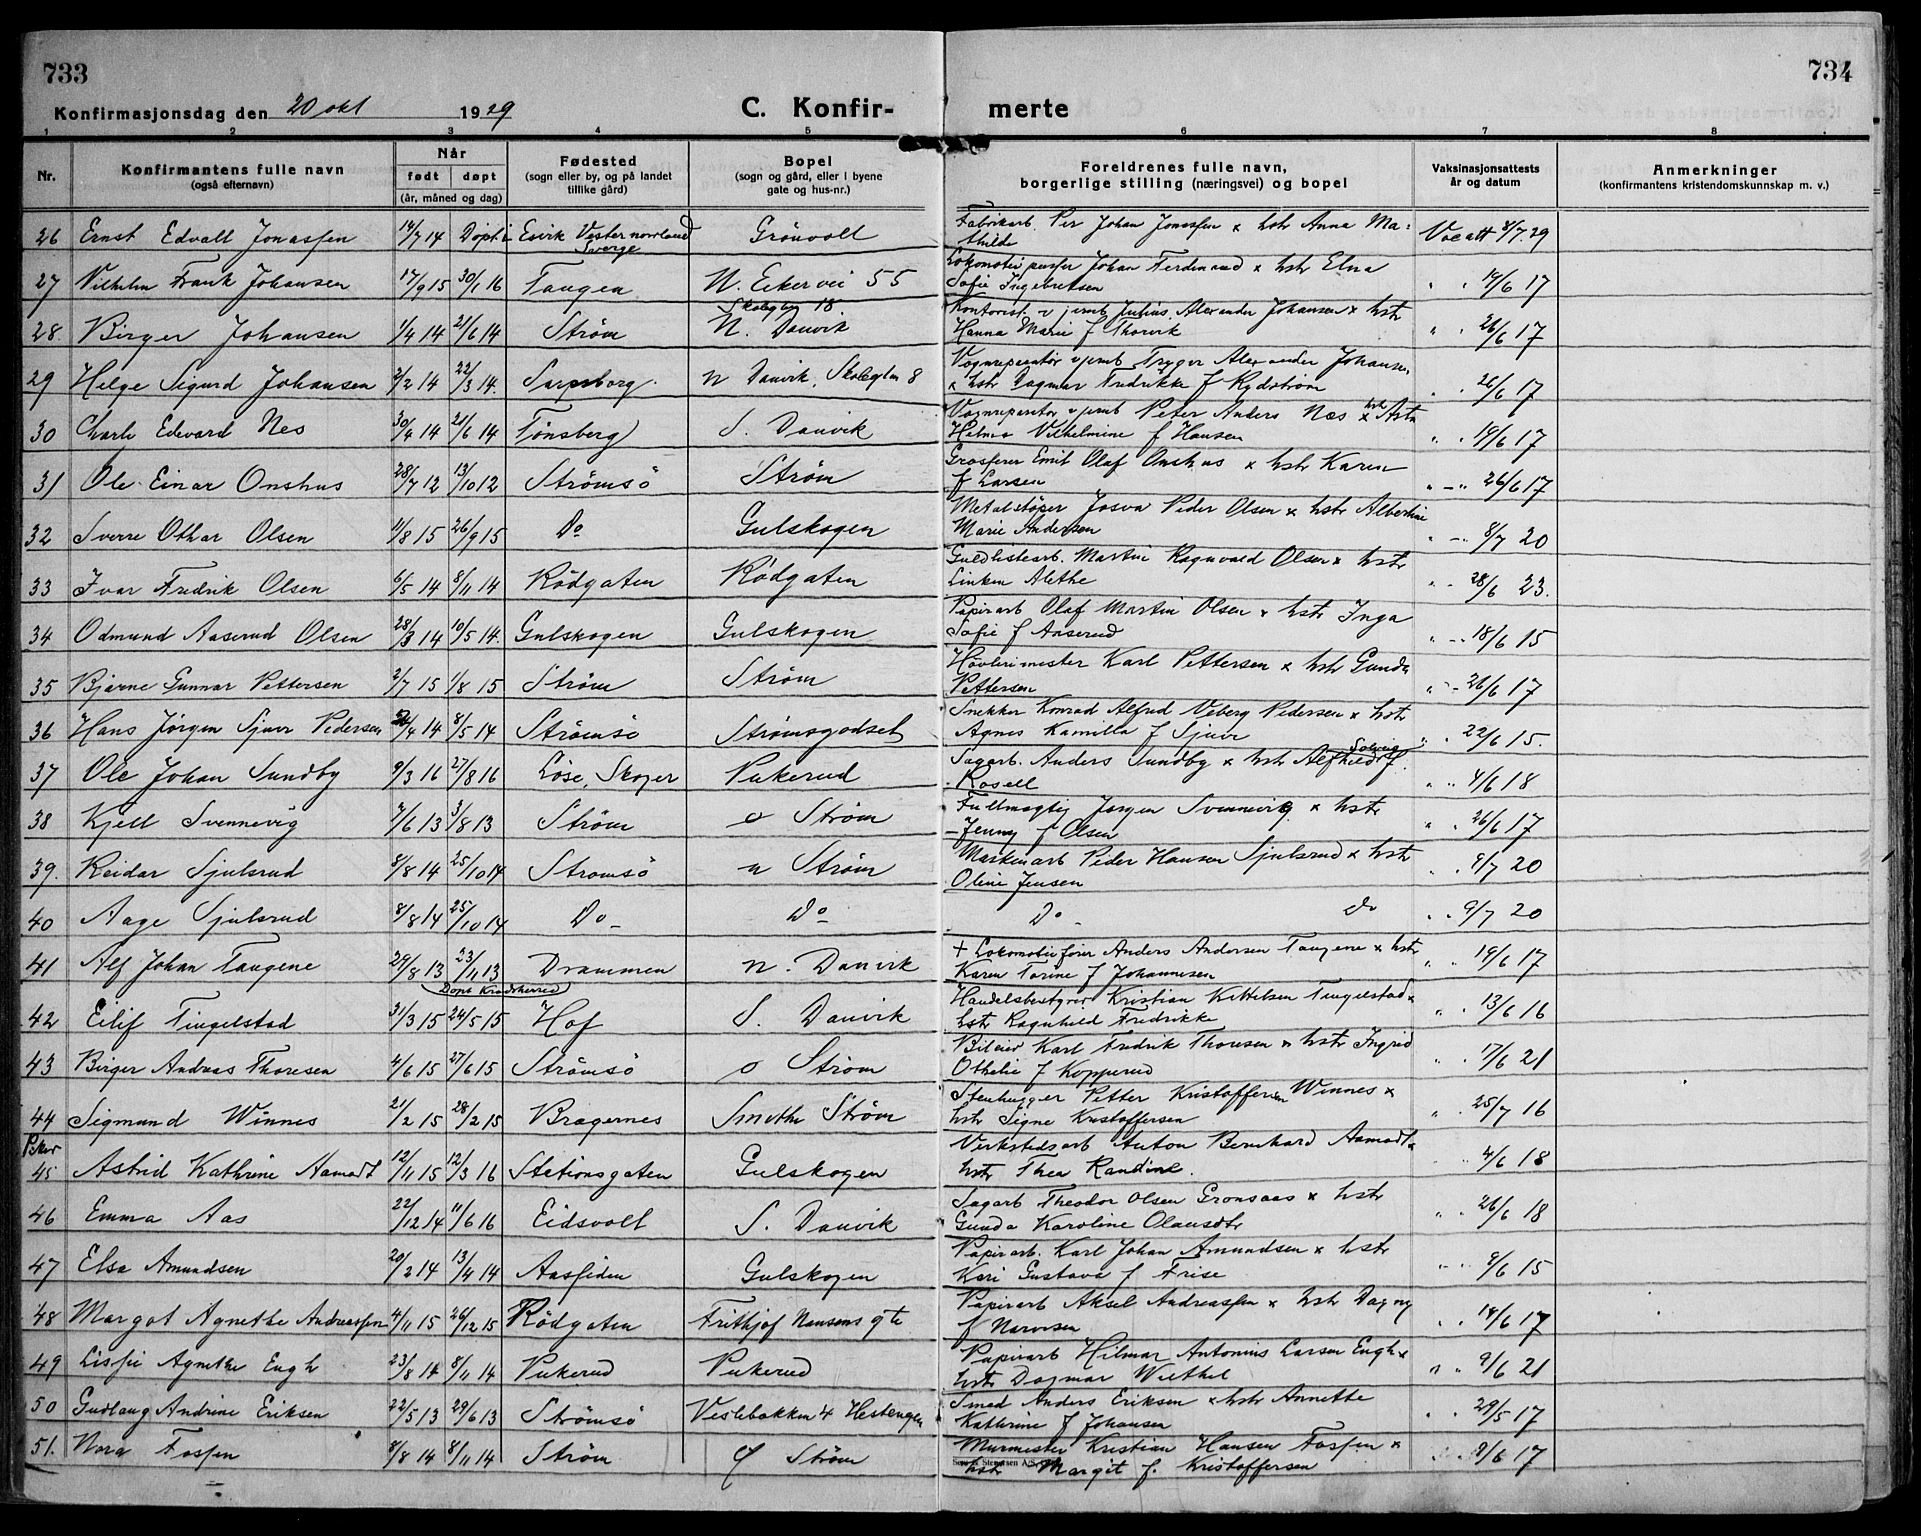 733
734
Konfirmasjonsdag den 20 okt 1929
C. Konfir-
merte
1 2 3 4 5 6 7 8
Nr.
Konfirmantens fulle navn
(også efternavn)
Når
født døpt
(år, måned og dag)
Fødested
(sogn eller by, og på landet
tillike gård)
Bopel
(sogn og gård, eller i byene
gate og hus-nr.)
Foreldrenes fulle navn,
borgerlige stilling (næringsvei) og bopel
Vaksinasjonsattests
år og datum
Anmerkninger
(konfirmantens kristendomskunnskap m. v.)
26 Ernst Edvall Jonassen 14/7 14 Døpt i Esvik Vesternorrland Sverge Grönvold Fabrikarb. Per Johan Jonassen x hstr Anna Ma-
thilde Vac att 8/7.29
27 Vilhelm Frank Johansen 17/9 15 30/1 16 Tangen N. Eikervei 55 Lokomotivpusser Johan Ferdinand x hstr Elna
Sofie Ingebretsen " " 19/6 17
28. Birger Johansen 1/4 14 21/6 14 Strøm Skoleglen 18 N. Danvik Kontorist v jernb Julius Alexander Johansen x hstr
Hanna Marie f Thorvik " " 26/6 17
29 Helge Sigurd Johansen 2/2 14 22/3 14. Sarpsborg. N Danvik, Skoleglen 8 Vognreparatør v jernb Trygve Alexander Johansen
x hstr Dagmar Fredrikke f Rydström " 26/6 17
30 Charls Edevard Nes 30/4 14 21/6 14 Tønsberg S. Danvik Vognreparatør v jernb Peter Anders Næs x hstr Asta
Helma Vilhelmine f Hansen " " 19/6 17
31 Ole Einar Onshus 28/7 12 13/10 12 Strømsö Strøm Grosserer Emil Olaf Onshus x hstr Karen
f Larsen " - " 26/6 17
32 Sverre Othar Olsen 11/8 15 26/9 15 Do Gulskogen Metalstøper Josva Peder Olsen x hstr Albertine
Marie Andersen " - " 8/7 20
33 Ivar Fredrik Olsen 6/5 14 8/11 14 Rödgaten Rödgaten Guldlistearb. Martin Ragnvald Olsen x hstr
Linken Alethe " " 28/6 23.
34 Odmund Aaserud Olsen 28/3 14 10/5 14. Gulskogen Gulskogen Papirarb Olaf Martin Olsen x hstr Inga
Sofie f Aaserud " - " 18/6 15
35 Bjarne Gunnar Pettersen 2/7 15 1/8 15 Strøm Strøm Høvlerimester Karl Pettersen x hstr Gunda
Pettersen " " 26/6 17
36 Hans Jörgen Sjuve Pedersen /4 14 8/5 14 Strømsö Strømsgodset Snekker Konrad Alfred Veberg Pedersen x hstr
Agnes Kamilla f Sjuve " " 22/6 15.
37 Ole Johan Sundby 9/3 16 27/8 16 Löse, Skoger Pukerud Sagarb. Anders Sundby x hstr Alfhild Solveig f.
Rosell " " 4/6 18
38 Kjell Svennevig 7/6 13 3/8 13 Strøm o Strøm Fullmægtig Jørgen Svennevig x hstr
Jenny f Olsen " " 26/6 17
39. Reidar Sjulsrud 8/8 14 25/10 14 Strømsö n Strøm Maskinarb Peder Hansen Sjulsrud x hstr
Oline Jensen " " 9/7 20
40 Aage Sjulsrud 8/8 14 25/10 14 Do - Do Do - Do " " 9/7 20
41 Alf Johan Tangene 29/8 13 23/11 13 Drammen N. Danvik + Lokomotivfører Anders Andersen Tangene x hstr
Karen Tarine f Johannesen " " 19/6 17
Døpt Krødsherred
42 Eilif Tingelstad 31/3 15 24/5 15 Hof S. Danvik Handelsbestyrer Kristian Kittelsen Tingelstad x
hstr Ragnhild Fredrikke " " 13/6 16
43 Birger Andreas Thoresen 4/6 15 27/6 15 Strømsö o Strøm Bileier Karl Fredrik Thoresen x hstr Ingrid
Othelie f Kopperud " " 17/6 21
44 Sigmund Winnes 21/2 15 28/2 15 Bragernes Smithe Strøm Stenhugger Petter Kristoffersen Winnes x
hstr Signe Kristoffersen " " 25/7 16
Piker
45 Astrid Kathrine Aamodt 12/11 15 12/3 16 Stationsgaten Gulskogen Verkstedsarb Anton Bernhard Aamodt x
hstr Thea Randine. " " 4/6 18
46 Emma Aas 22/12 14 11/6 16 Eidsvolt S. Danvik Sagarb Theodor Olsen Gronsaas x hstr
Gunda Karoline Olausdtr " " 26/6 18
47 Elsa Amundsen 20/2 14 13/4 14 Aassiden Gulskogen Papirarb. Karl Johan Amundsen x hstr
Kari Gustava f Frise " " 9/6 15
48 Margot Agnethe Andreassen 4/11 15 26/12 15 Rödgaten Frithjof Nansens gte Papirarb Aksel Andreassen x hstr Dagny
f Narvesen " " 18/6 17
49 Lissie Agnethe Engh 23/8 14 8/11 14 Pukerud Pukerud Papirarb Hilmar Antonius Larsen Engh x
hstr Dagmar Wethel " " 9/6 21
50 Gudlaug Andrine Eriksen 22/5 13 29/6 13 Strømsö Veslebakken 4 Hestengen Smed Anders Eriksen x hstr Annette
Kathrine f Johansen " " 29/5 17
51. Nora Fossen 8/8 14 8/11 14 Strøm Strøm Murmester Kristian Hansen Fossen x
hstr Margit f. Kristoffersen " " 8/6 17